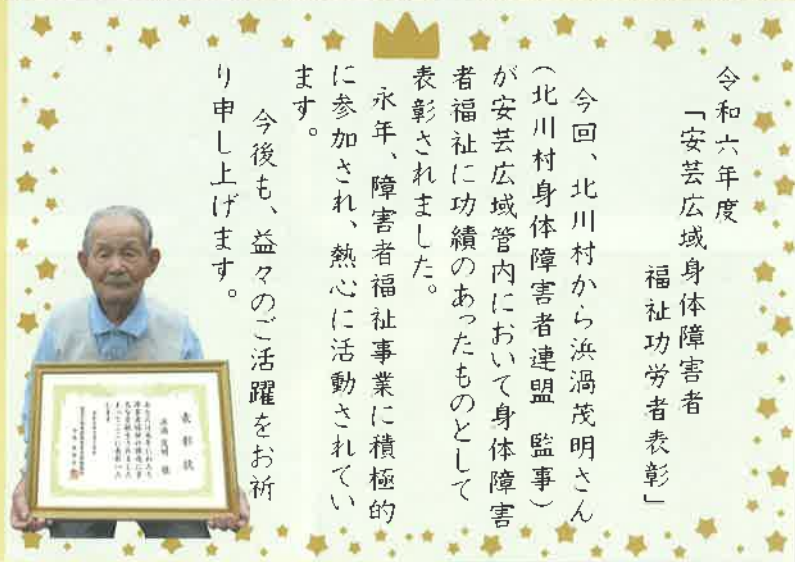 令和六年度
「安芸広域身体障害者
福祉功労者表彰」
今回、北川村から浜渦茂明さん
(北川村身体障害者連盟 監事)
が安芸広域管内において身体障害
者福祉に功績のあったものとして
表彰されました。
永年、障害者福祉事業に積極的
に参加され、熱心に活動されてい
ます。
今後も、益々のご活躍をお祈
り申し上げます。
表彰状